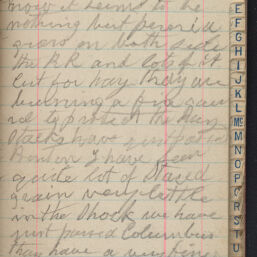 now it seems to be
nothing but
grow on both side
the RR and lots of it
cut for hay they are
burning a fire guard
rd to protect the hay
stacks have just got in
I have seen
quite lot of staced
grain very little
in the shock we have
just passed Columbus
they have a very fine
E
F
G
H
I
J
K
L
Mc
M
N
O
P
Q
R
S
T
U